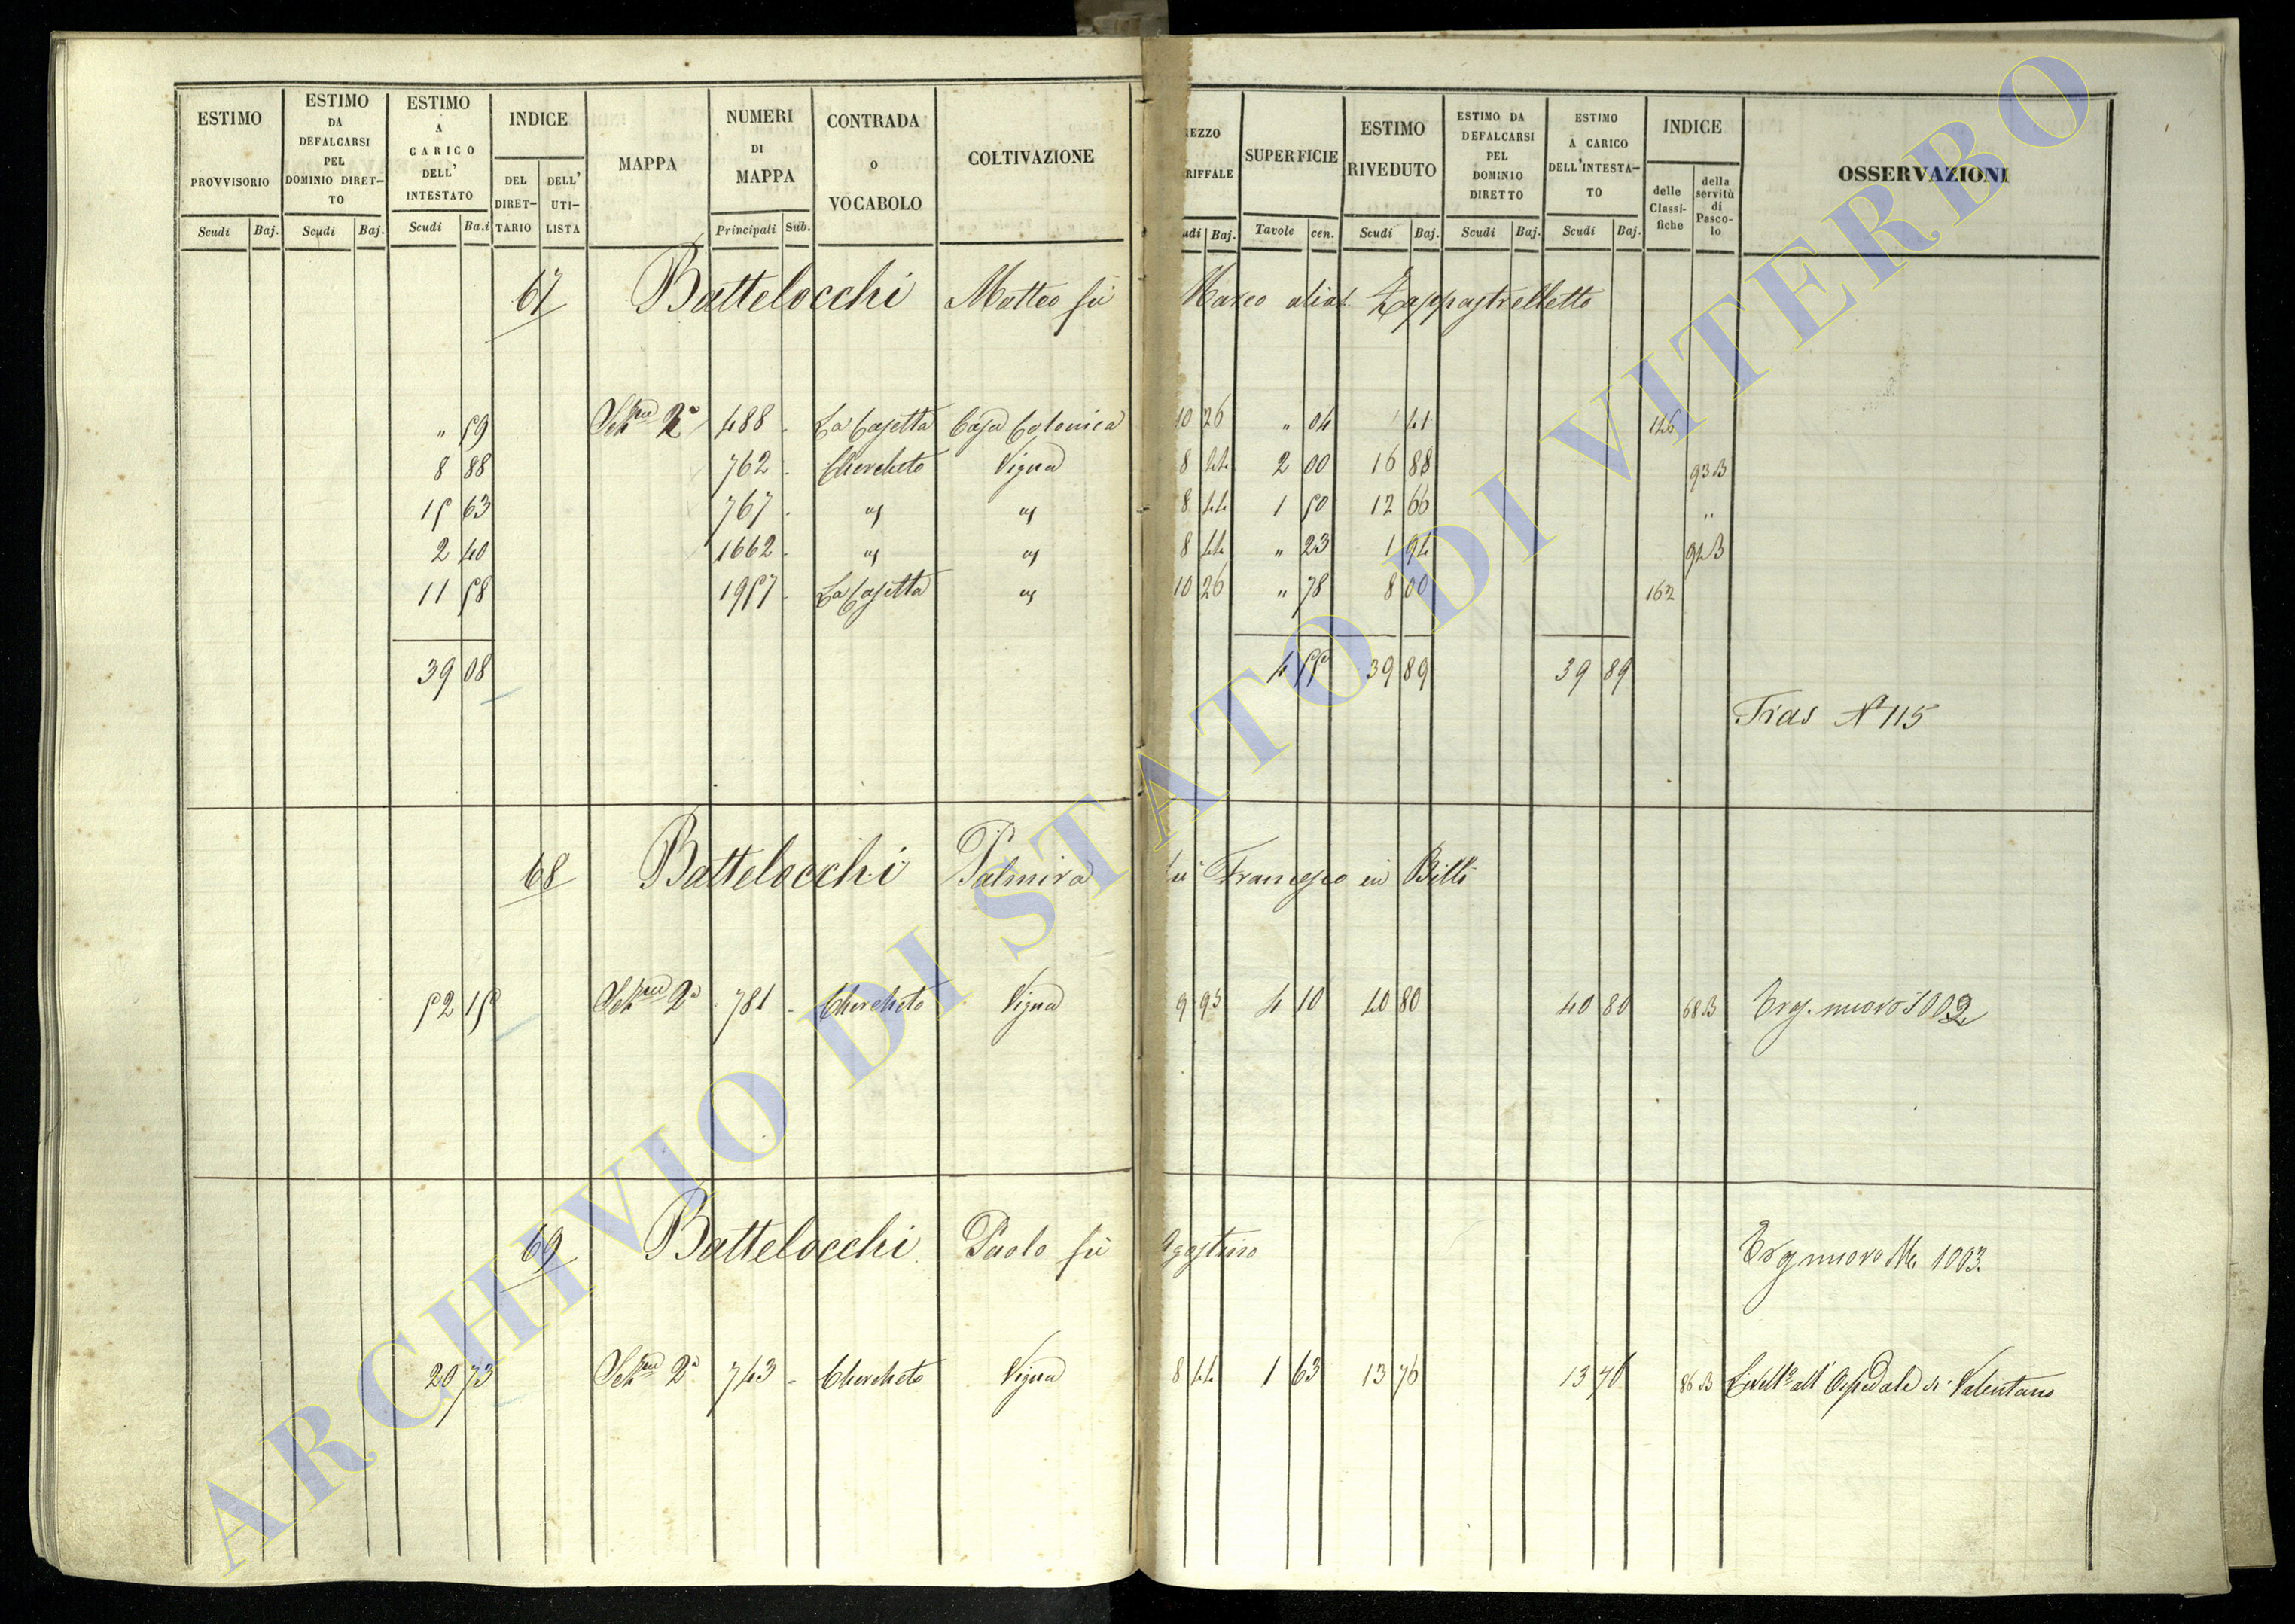 ESTIMO PROVVISORIO
Scudi Baj.
ESTIMO DA DEFALCARSI PEL DOMINIO DIRET-TO
Scudi Baj.
ESTIMO A CARICO DELL' INTESTATO
Scudi Ba.i
INDICE
DEL DIRET-TARIO
DELL' UTI-LISTA
MAPPA
NUMERI DI MAPPA
Principali Sub.
CONTRADA o VOCABOLO
COLTIVAZIONE
REZZO RIFFALE
udi Baj.
SUPERFICIE
Tavole cen.
ESTIMO RIVEDUTO
Scudi Baj.
ESTIMO DA DEFALCARSI PEL DOMINIO DIRETTO
Scudi Baj.
ESTIMO A CARICO DELL'INTESTA-TO
Scudi Baj.
INDICE
delle Classi-fiche
della servitù di Pasco-lo
OSSERVAZIONI
67 Battelocchi Matteo fù Marco alias Zappastrelletto
" 59 Sez.ne 2a 488 - La Casetta Casa Colonica 10 26 " 04 " 41 146
8 88 762 - Chercheto Vigna 8 44 2 00 16 88 93 B
15 63 767 - " " 8 44 1 50 12 66 "
2 40 1662 - " " 8 44 " 23 1 94 94 B
11 58 1957 - La Casetta " 10 26 " 78 8 00 162
39 08 4 55 39 89 39 89
Tras N° 115
68 Battelocchi Palmira fù Francesco in Billi
52 15 Sez.ne 2a 781 - Chercheto Vigna 9 95 4 10 40 80 40 80 68 B Org. nuovo 1002
69 Battelocchi Paolo fù Agostino
Org nuovo No 1003.
20 73 Sez.ne 2a 743 - Chercheto Vigna 8 44 1 63 13 76 13 76 86 B Livell° all' Ospedale di Valentano
ARCHIVIO DI STATO DI VITERBO